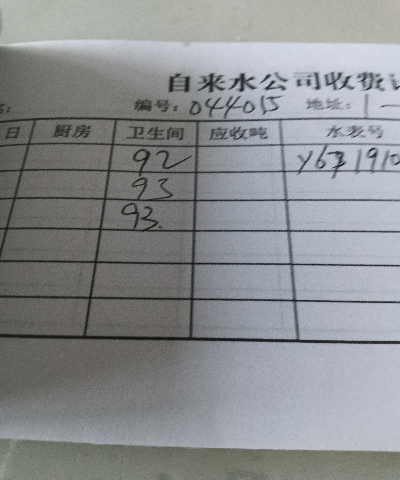 自来水公司收费
编号: 044015 地址: 1一
日 厨房 卫生间 应收吨 水表号
92
93
93.